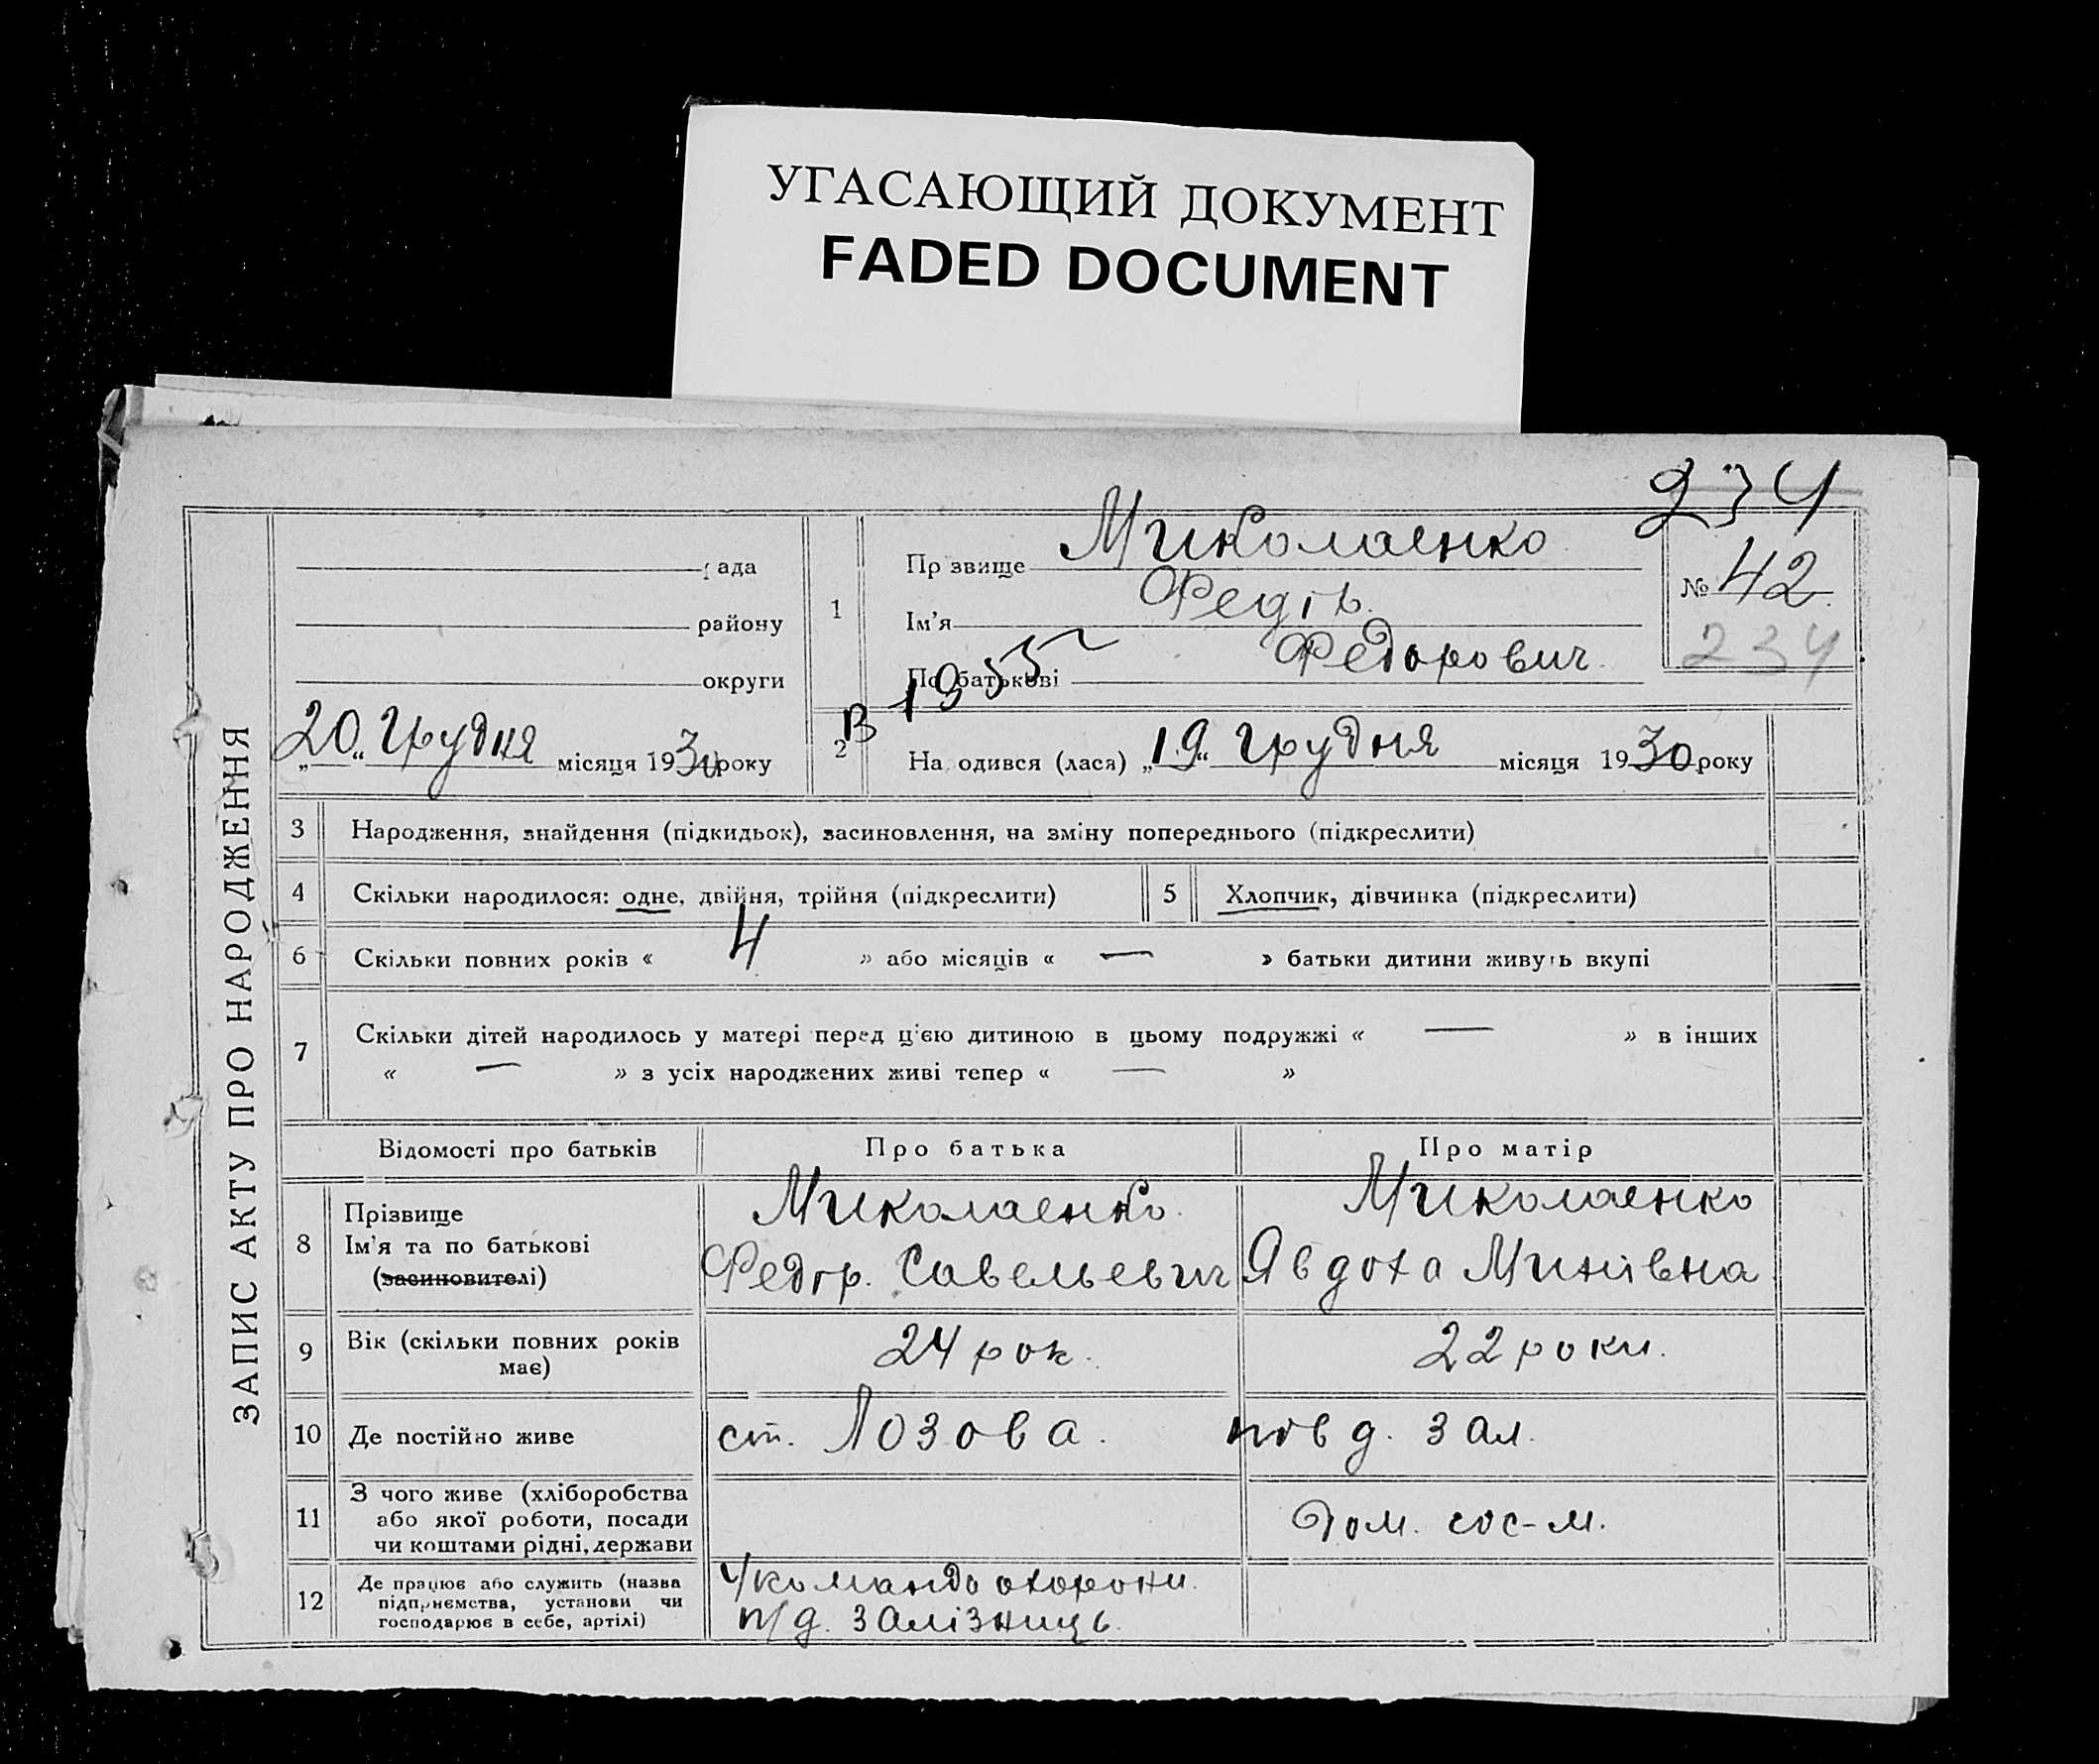 УГАСАЮЩИЙ ДОКУМЕНТ
FADED DOCUMENT
234
ЗАПИС АКТУ ПРО НАРОДЖЕННЯ
рада
району
округи
„20“ Грудня місяця 1930 року
1
Пр звище Миколаенко
Ім'я Федір.
По батькові Федорович
№ 42
234
В 1955
2 На одився (лася) „19“ Грудня місяця 1930 року
3 Народження, знайдення (підкидьок), засиновлення, на зміну попереднього (підкреслити)
4 Скільки народилося: одне, двійня, трійня (підкреслити) 5 Хлопчик, дівчинка (підкреслити)
6 Скільки повних років « 4 » або місяців « — » батьки дитини живуть вкупі
7 Скільки дітей народилось у матері перед цією дитиною в цьому подружжі « — » в інших
« — » з усіх народжених живі тепер « — »
Відомості про батьків Про батька Про матір
8 Прізвище Миколаенко. Миколаенко
Ім'я та по батькові Федір. Савельевич Явдоха Минівна
(засиновителі)
9 Вік (скільки повних років має) 24 рок. 22 роки.
10 Де постійно живе ст. Лозова. півд. Зал.
11 З чого живе (хліборобства
або якої роботи, посади
чи коштами рідні, держави Дом. гос-м.
12 Де працює або служить (назва
підприємства, установи чи
господарює в себе, артілі)
У команді охорони.
п/д. Залізниць.